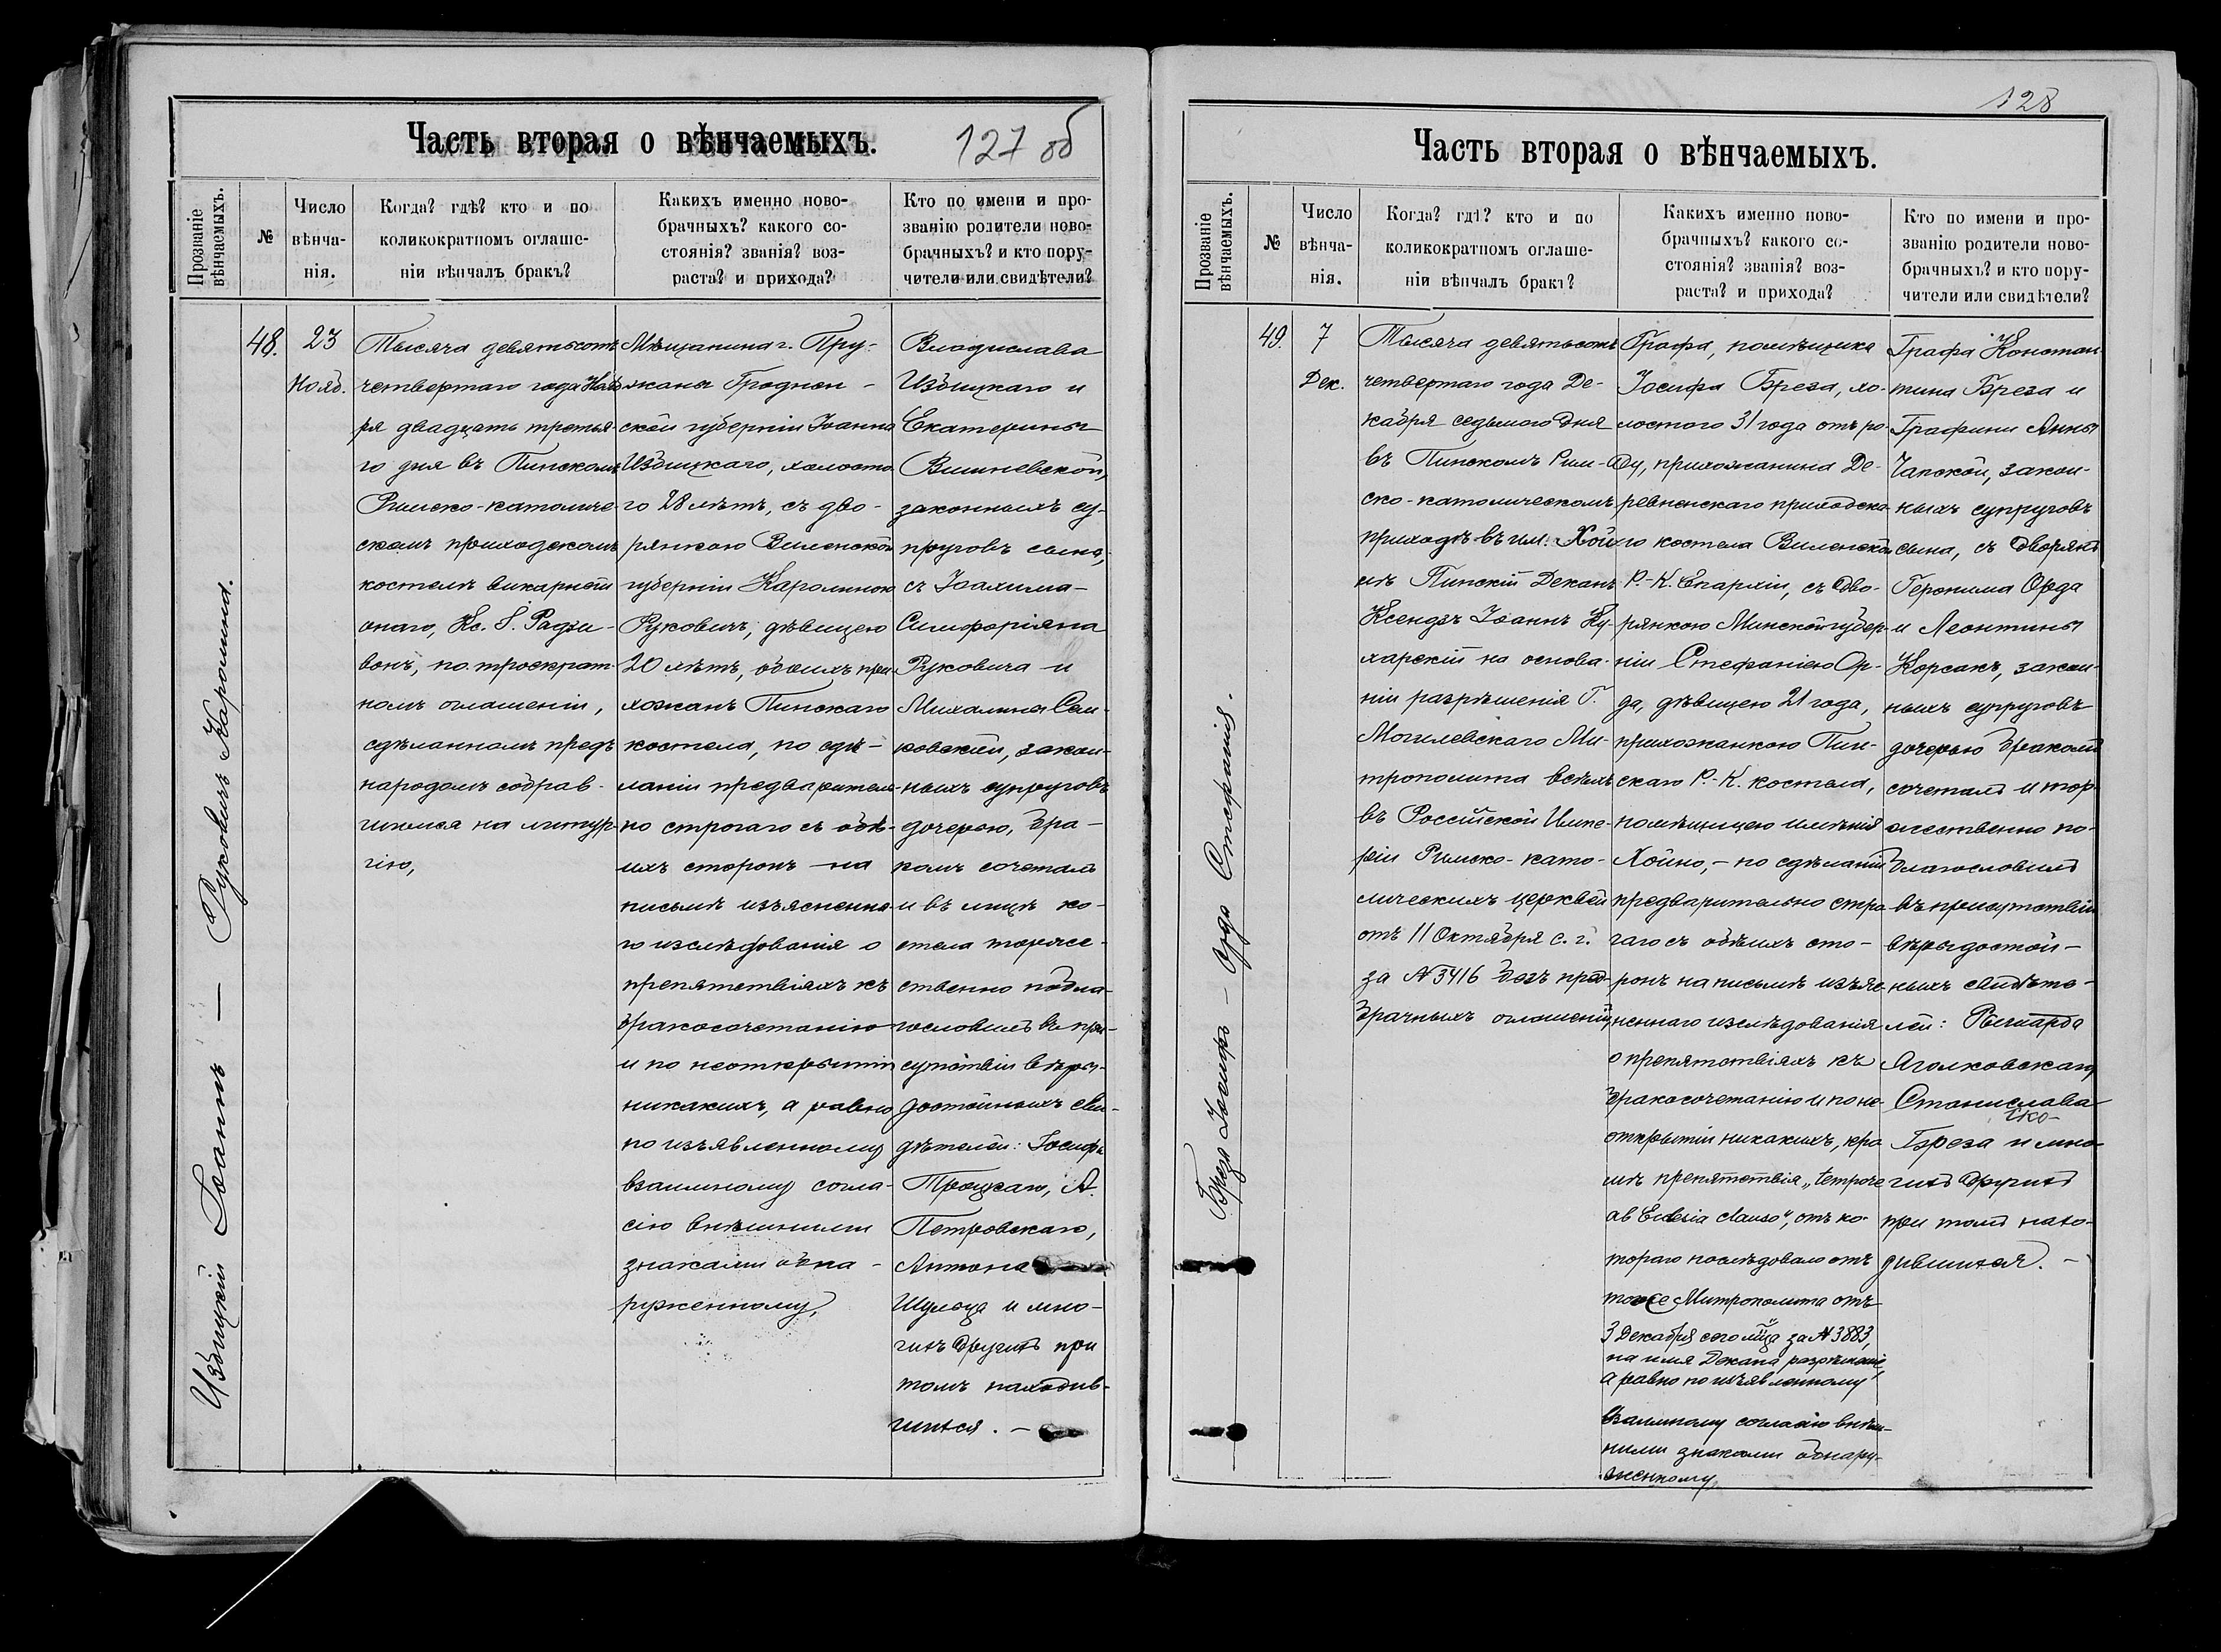 Часть вторая о вѣнчаемыхъ.
127 об
Прозваніе
вѣнчаемыхъ.
№
Число
вѣнча-
нія.
Когда? гдѣ? кто и по
коликократномъ оглаше-
ніи вѣнчалъ бракъ?
Какихъ именно ново-
брачныхъ? какого со-
стоянія? званія? воз-
раста? и прихода?
Кто по имени и про-
званію родители ново-
брачныхъ? и кто пору-
чители или свидѣтели?
Избицкій Іоаннъ — Руковичъ Каролина.
48.
23
Нояб.
Тысяча девятьсотъ
четвертаго года Нояб
ря двадцать третья-
го дня въ Пинскомъ
Римско-католиче-
скомъ приходскомъ
костелѣ викарный
онаго, Кс. Радзи-
вонъ, по троекрат-
номъ оглашеніи,
сдѣланномъ предъ
народомъ собрав-
шимся на литур-
гію,
Мѣщанина г. Пру-
жаны Гроднен-
ской губерніи Іоанна
Избицкаго, холосто
го 28 лѣтъ, съ дво-
рянкою Виленской
губерніи Каролиною
Руковичъ, дѣвицею
20 лѣтъ, обоихъ при
хожанъ Пинскаго
костела, по сдѣ-
ланіи предварител-
но строгаго съ обѣ-
ихъ сторонъ на
письмѣ изъясненна-
го изслѣдованія о
препятствіяхъ къ
бракосочетанію
и по неоткрытіи
никакихъ, а равно
по изъявленному
взаимному согла-
сію внѣшними
знаками обна-
руженному,
Владислава
Избицкаго и
Екатерины
Вишневской,
законныхъ су-
пруговъ сына,
съ Іоахима-
Симфоріяна
Руковича и
Михалины Сен-
ковскій, закон-
ныхъ супруговъ
дочерью, бра-
комъ сочеталъ
и въ лицѣ ко-
стела торже-
ственно побла-
гословилъ въ при-
сутствіи вѣры-
достойныхъ сви-
дѣтелей: Іосифа
Троцкаго, А.
Петровскаго,
Антона
Шульца и мно-
гихъ другихъ при
томъ находив-
шихся. —
128
Часть вторая о вѣнчаемыхъ.
Прозваніе
вѣнчаемыхъ.
№
Число
вѣнча-
нія.
Когда? гдѣ? кто и по
коликократномъ оглаше-
ніи вѣнчалъ бракъ?
Какихъ именно ново-
брачныхъ? какого со-
стоянія? званія? воз-
раста? и прихода?
Кто по имени и про-
званію родители ново-
брачныхъ? и кто пору-
чители или свидѣтели?
Бреза Іосифъ — Орда Стефанія.
49.
7
Дек.
Тысяча девятьсотъ
четвертаго года Де-
кабря седьмого дня
въ Пинскомъ Рим-
ско-католическомъ
приходѣ въ им. Хой
нѣ Пинскій Деканъ
Ксендзъ Іоаннъ Ку-
харскій на основа-
ніи разрѣшенія Г.
Могилевскаго Ми-
трополита всѣхъ
въ Россійской Импе-
ріи Римско-като-
лическихъ церквей
отъ 11 Октября с. г.
за № 3416 безъ пред-
брачныхъ оглашеній,
Графа, помѣщика
Іосифа Бреза, хо-
лостого 31 года отъ ро-
ду, прихожанина Де-
ревненскаго приходска-
го костела Виленской
Р.-К. Епархіи, съ дво-
рянкою Минской губер-
ніи Стефаніею Ор-
да, дѣвицею 21 года,
прихожанкою Пин-
скаго Р.-К. костела,
помѣщицею имѣнія
Хойно, — по сдѣланіи
предварительно стро
гаго съ обѣихъ сто-
ронъ на письмѣ изъяс-
неннаго изслѣдованія
о препятствіяхъ къ
бракосочетанію и по не-
открытіи никакихъ, кро
мѣ препятствія „tempore
ab Eclesia clauso“, отъ ко-
тораго послѣдовало отъ
того же Митрополита отъ
3 Декабря сего м-ца за № 3883,
на имя Декана разрѣшеніе,
а равно по изъявленному
взаимному согласію внѣш-
ними знаками обнару-
женному,
Графа Констан-
тина Бреза и
Графини Анны
Чапской, закон-
ныхъ супруговъ
сына, съ дворянъ
Геронима Орда
и Леонтины
Корсакъ, закон-
ныхъ супруговъ
дочерью бракомъ
сочеталъ и тор-
жественно по-
благословилъ
въ присутствіи
вѣрыдостой-
ныхъ свидѣте-
лей: Рышарда
Яголковскаго,
Станислава
Бреза и мно-
гихъ другихъ
при томъ нахо-
дившихся. —